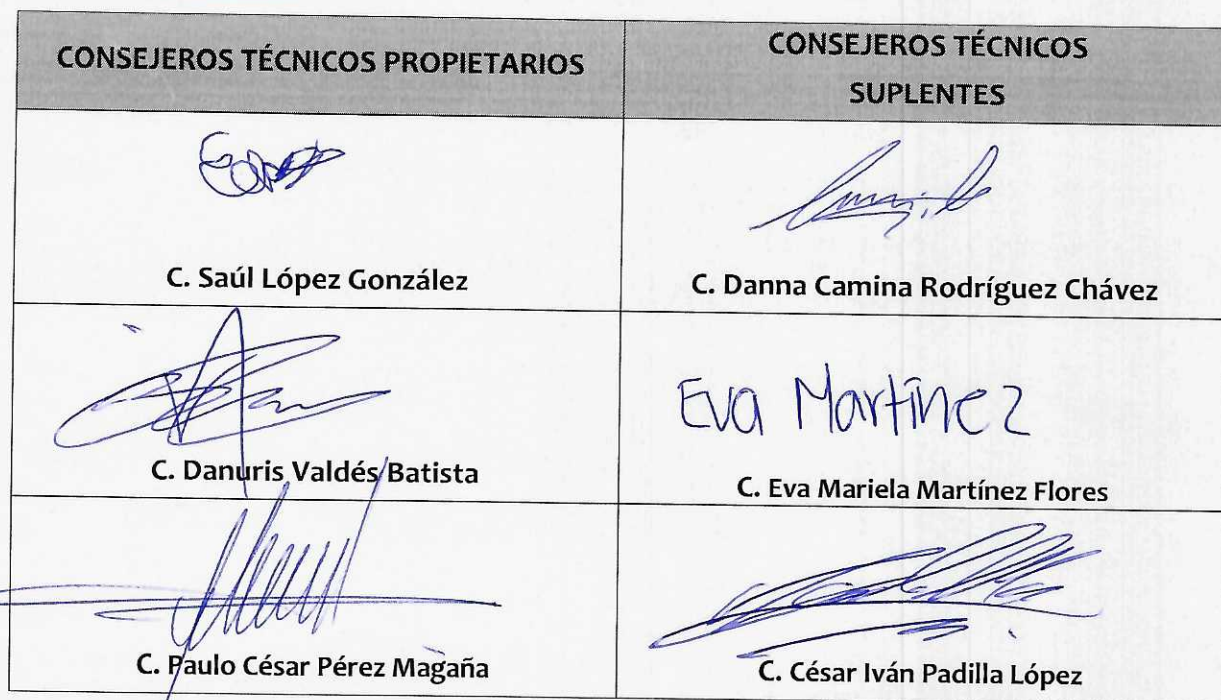 CONSEJEROS TÉCNICOS PROPIETARIOS
CONSEJEROS TÉCNICOS
SUPLENTES
C. Saúl López González
C. Danna Camina Rodríguez Chávez
C. Danuris Valdés Batista
Eva Martínez
C. Eva Mariela Martínez Flores
C. Paulo César Pérez Magaña
C. César Iván Padilla López